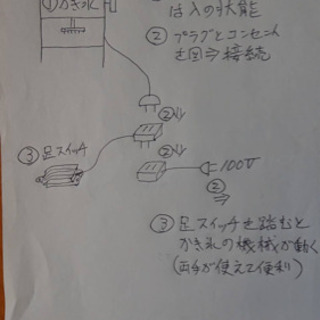 ①かき氷
は入の状態
②プラグとコンセント
を図⇒接続
②⇓
②⇓
③足スイッチ
100V
②
⇒
③足スイッチを踏むと
かき氷の機械が動く
(両手が使えて便利)